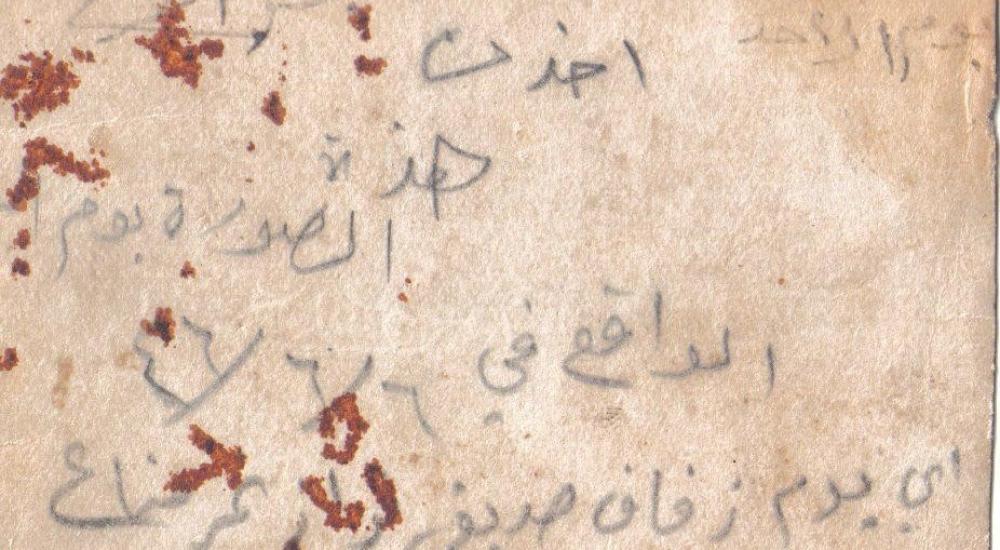 يوم الاحد
اخذت
هذة
الصورة يوم
الواقع في ٦/٦/٤٦
اي يوم زفاف صديقي